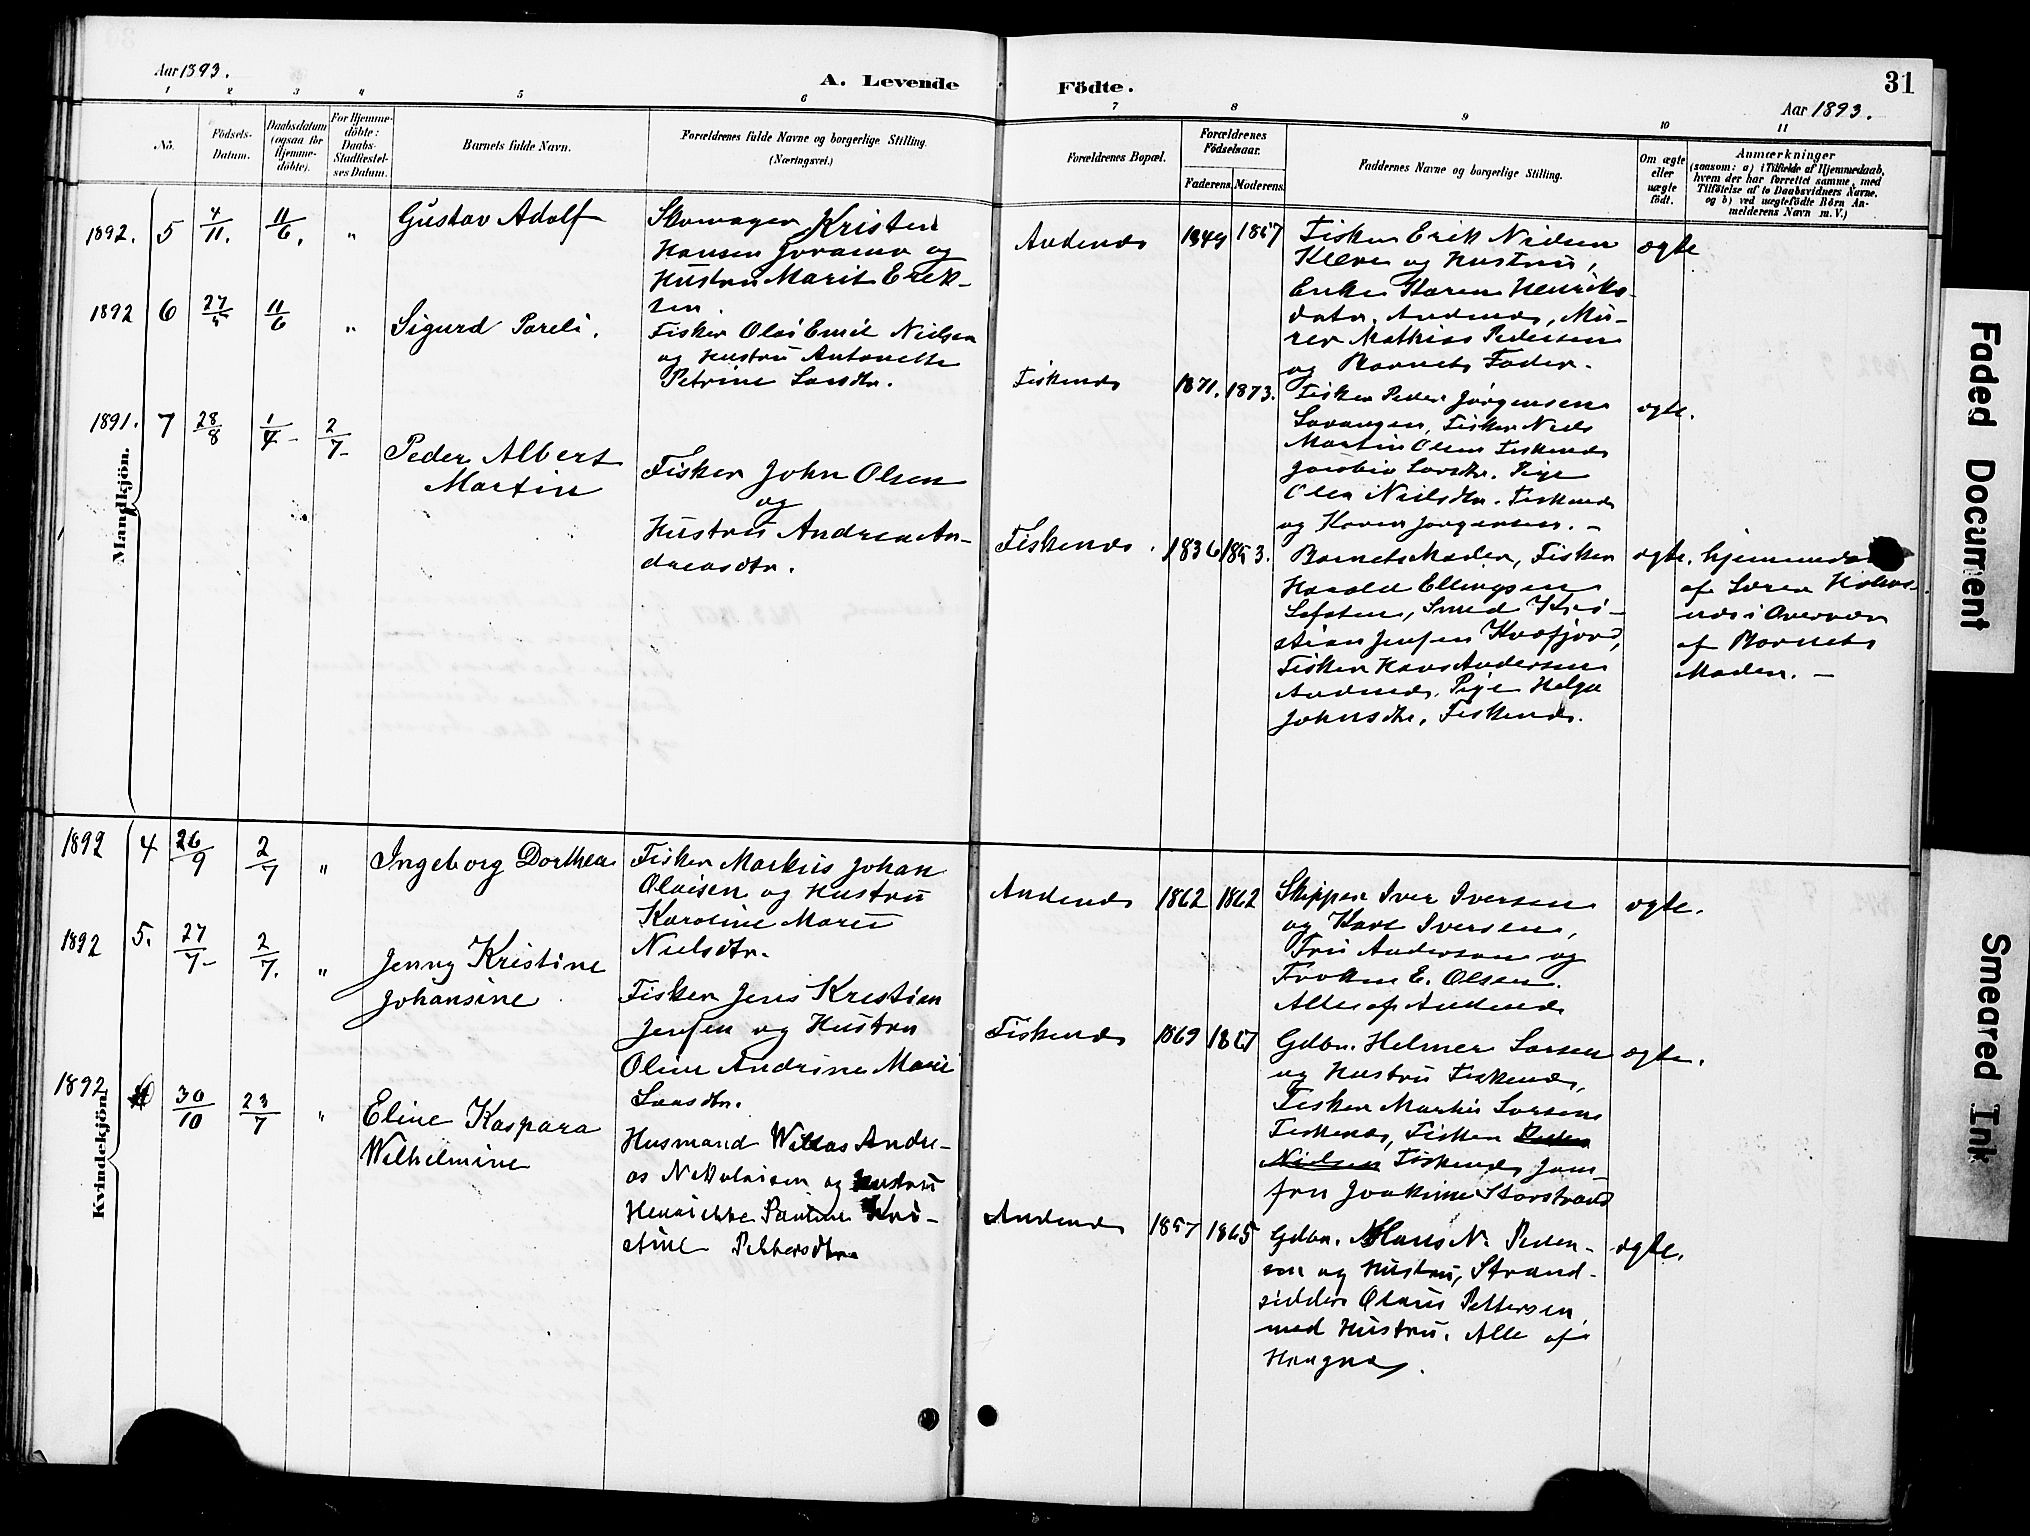 Aar 1893.
A. Levende
Födte.
31
Aar 1893.
1 2 3 4 5 6 7 8 9 10 11
No.
Födsels-
Datum.
Daabsdatum
(ogsaa for
Hjemme-
döbte).
For Hjemme-
döbte:
Daabs-
Stadfæstel-
ses Datum.
Barnets fulde Navn.
Forældrenes fulde Navne og borgerlige Stilling.
(Næringsvei.)
Forældrenes Bopæl.
Forældrenes
Födselsaar.
Faderens. Moderens.
Faddernes Navne og borgerlige Stilling.
Om ægte
eller
uægte
födt.
Anmærkninger
(saasom: a) i Tilfælde af Hjemmedaab,
hvem der har forrettet samme, med
Tilföielse af to Daabsvidners Navne,
og b) ved uægtefödte Börn An-
melderens Navn m. V.)
Mandkjön.
1892. 5 4/11. 11/6. "
Gustav Adolf
Skomager Kristen
Hansen og
Hustru Marit Erik-
sen.
Andenæs
1849 1867
Fisker Erik Nielsen
Kleven og Hustru,
Karen Henriks-
datr. Andenæs, Mu-
rer Mathias Pedersen
og Barnets Fader.
ægte
1892 6 27/5 11/6 "
Sigurd Pareli.
Fisker Olai Emil Nielsen
og Hustru Antonette
Petrine Larsdtr.
Fiskenæs
1871. 1873.
Fisker Peder Jørgensen
Savangen, Fisker Niels
Martin Olsen Fiskenæs
Larsdtr. Pige
Olea Nielsdtr. Fiskenæs
og Karen Jørgensen. -
ægte.
1891. 7 28/8 1/4- 2/7-
Peder Albert
Martin
Fisker John Olsen
og
Hustru Andrea An-
dreasdtr.
Fiskenæs.
1836 1853.
Barnets Moder, Fisker
Harald Ellingsen
Lofoten, Smed Kri-
stian Jensen Kvæfjord,
Fisker Hans Andersen
Andenæs. Pige Helga
Johnsdtr, Fiskenæs.
ægte.
af Søren
i Overvær
af Barnets
Moder. -
Kvindekjön.
1892 4 26/9 2/7 "
Ingeborg Dorthea
Fisker Markus Johan
Olaisen og Hustru
Karoline Marie
Nielsdtr.
Andenæs
1862 1862
Skipper Iver Iversen
og Karl Iversen,
Fru Andersen og
Frøken E. Olsen.
Alle af Andenæs
ægte.
1892 5. 27/7- 2/7. "
Jenny Kristine
Johansine
Fisker Jens Kristian
Jensen og Hustru
Oline Andrine Marie
Larsdtr.
Fiskenæs
1869 1867
Gdbr. Helmer Larsen
og Hustru Fiskenæs,
Fisker Martin Larsen
Fiskenæs, Fisker Peder
Nielsen Fiskenæs Jom-
fru Joakime Storstrand
ægte.
1892 30/10 23/7 "
Eline Kaspara
Wilhelmine
Husmand Andre-
as Nikolaisen og Hustru
Henriette Pauline Kri-
stine Pettersdtr
Andenæs
1857 1865
Gdbr. Hans N. Peder-
sen og Hustru, Strand-
sidder Olaus Pettersen
med Hustru. Alle af
Haugnæs.
ægte.
Faded Document
Smeared Ink